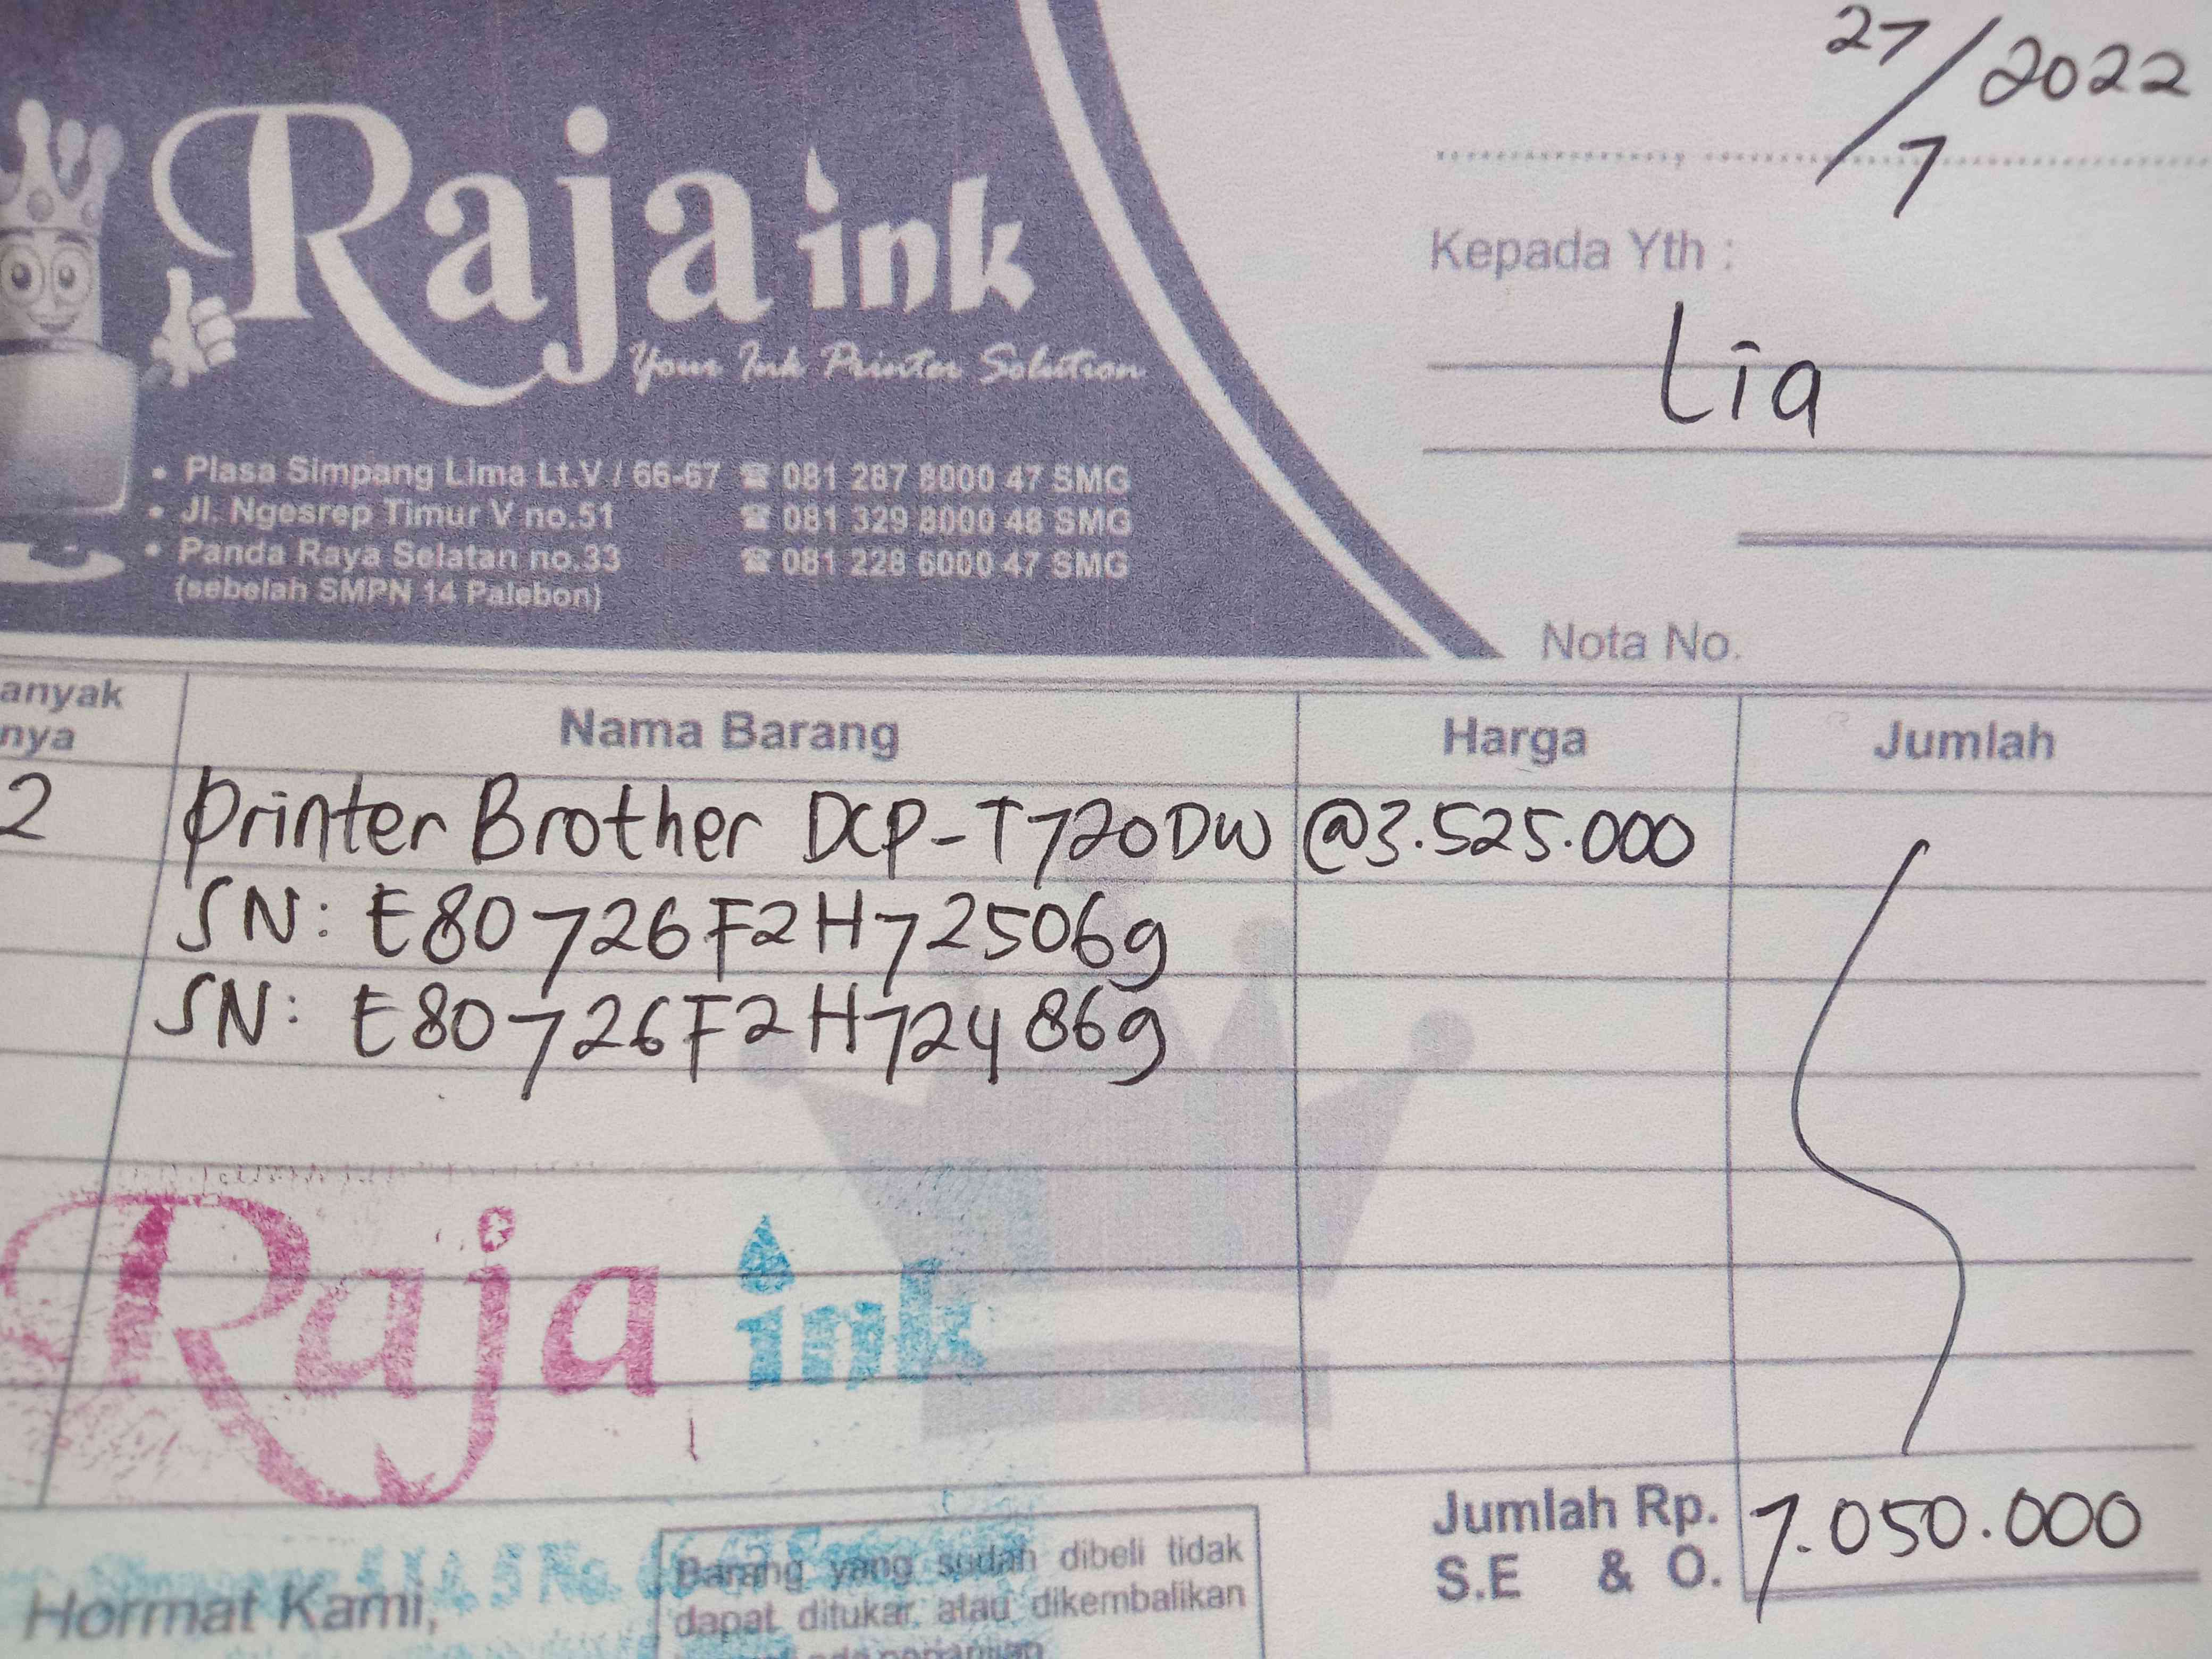 27/7/2022
Raja ink
Your Ink Printer Solution
Kepada Yth :
Lia
• Plasa Simpang Lima Lt.V / 66-67 ☎ 081 287 8000 47 SMG
• Jl. Ngesrep Timur V no.51 ☎ 081 329 8000 48 SMG
• Panda Raya Selatan no.33 ☎ 081 228 6000 47 SMG
(sebelah SMPN 14 Palebon)
Nota No.
anyak
nya
Nama Barang Harga Jumlah
2 Printer Brother DCP-T720DW @3.525.000
SN: E80726F2H725069
SN: E80726F2H724869
Raja ink
Jumlah Rp. 7.050.000
S.E & O.
Hormat Kami,
Barang yang sudah dibeli tidak
dapat ditukar atau dikembalikan